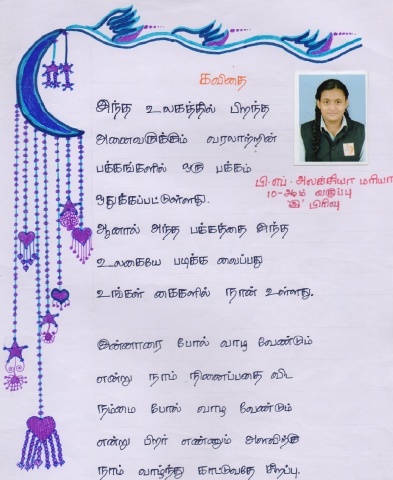 கவிதை
இந்த உலகத்தில் பிறந்த
அனைவருக்கும் வரலாற்றின்
பக்கங்களில் ஒரு பக்கம்
ஒதுக்கப்பட்டுள்ளது.
ஆனால் அந்த பக்கத்தை இந்த
உலகையே படிக்க வைப்பது
உங்கள் கைகளில் தான் உள்ளது.
இன்னாரை போல் வாழ வேண்டும்
என்று நாம் நினைப்பதை விட
நம்மை போல் வாழ வேண்டும்
என்று பிறர் எண்ணும் அளவிற்கு
நாம் வாழ்ந்து காட்டுவதே சிறப்பு.
பி.எப். அலக்சியா மரியா
10-ஆம் வகுப்பு
'இ' பிரிவு